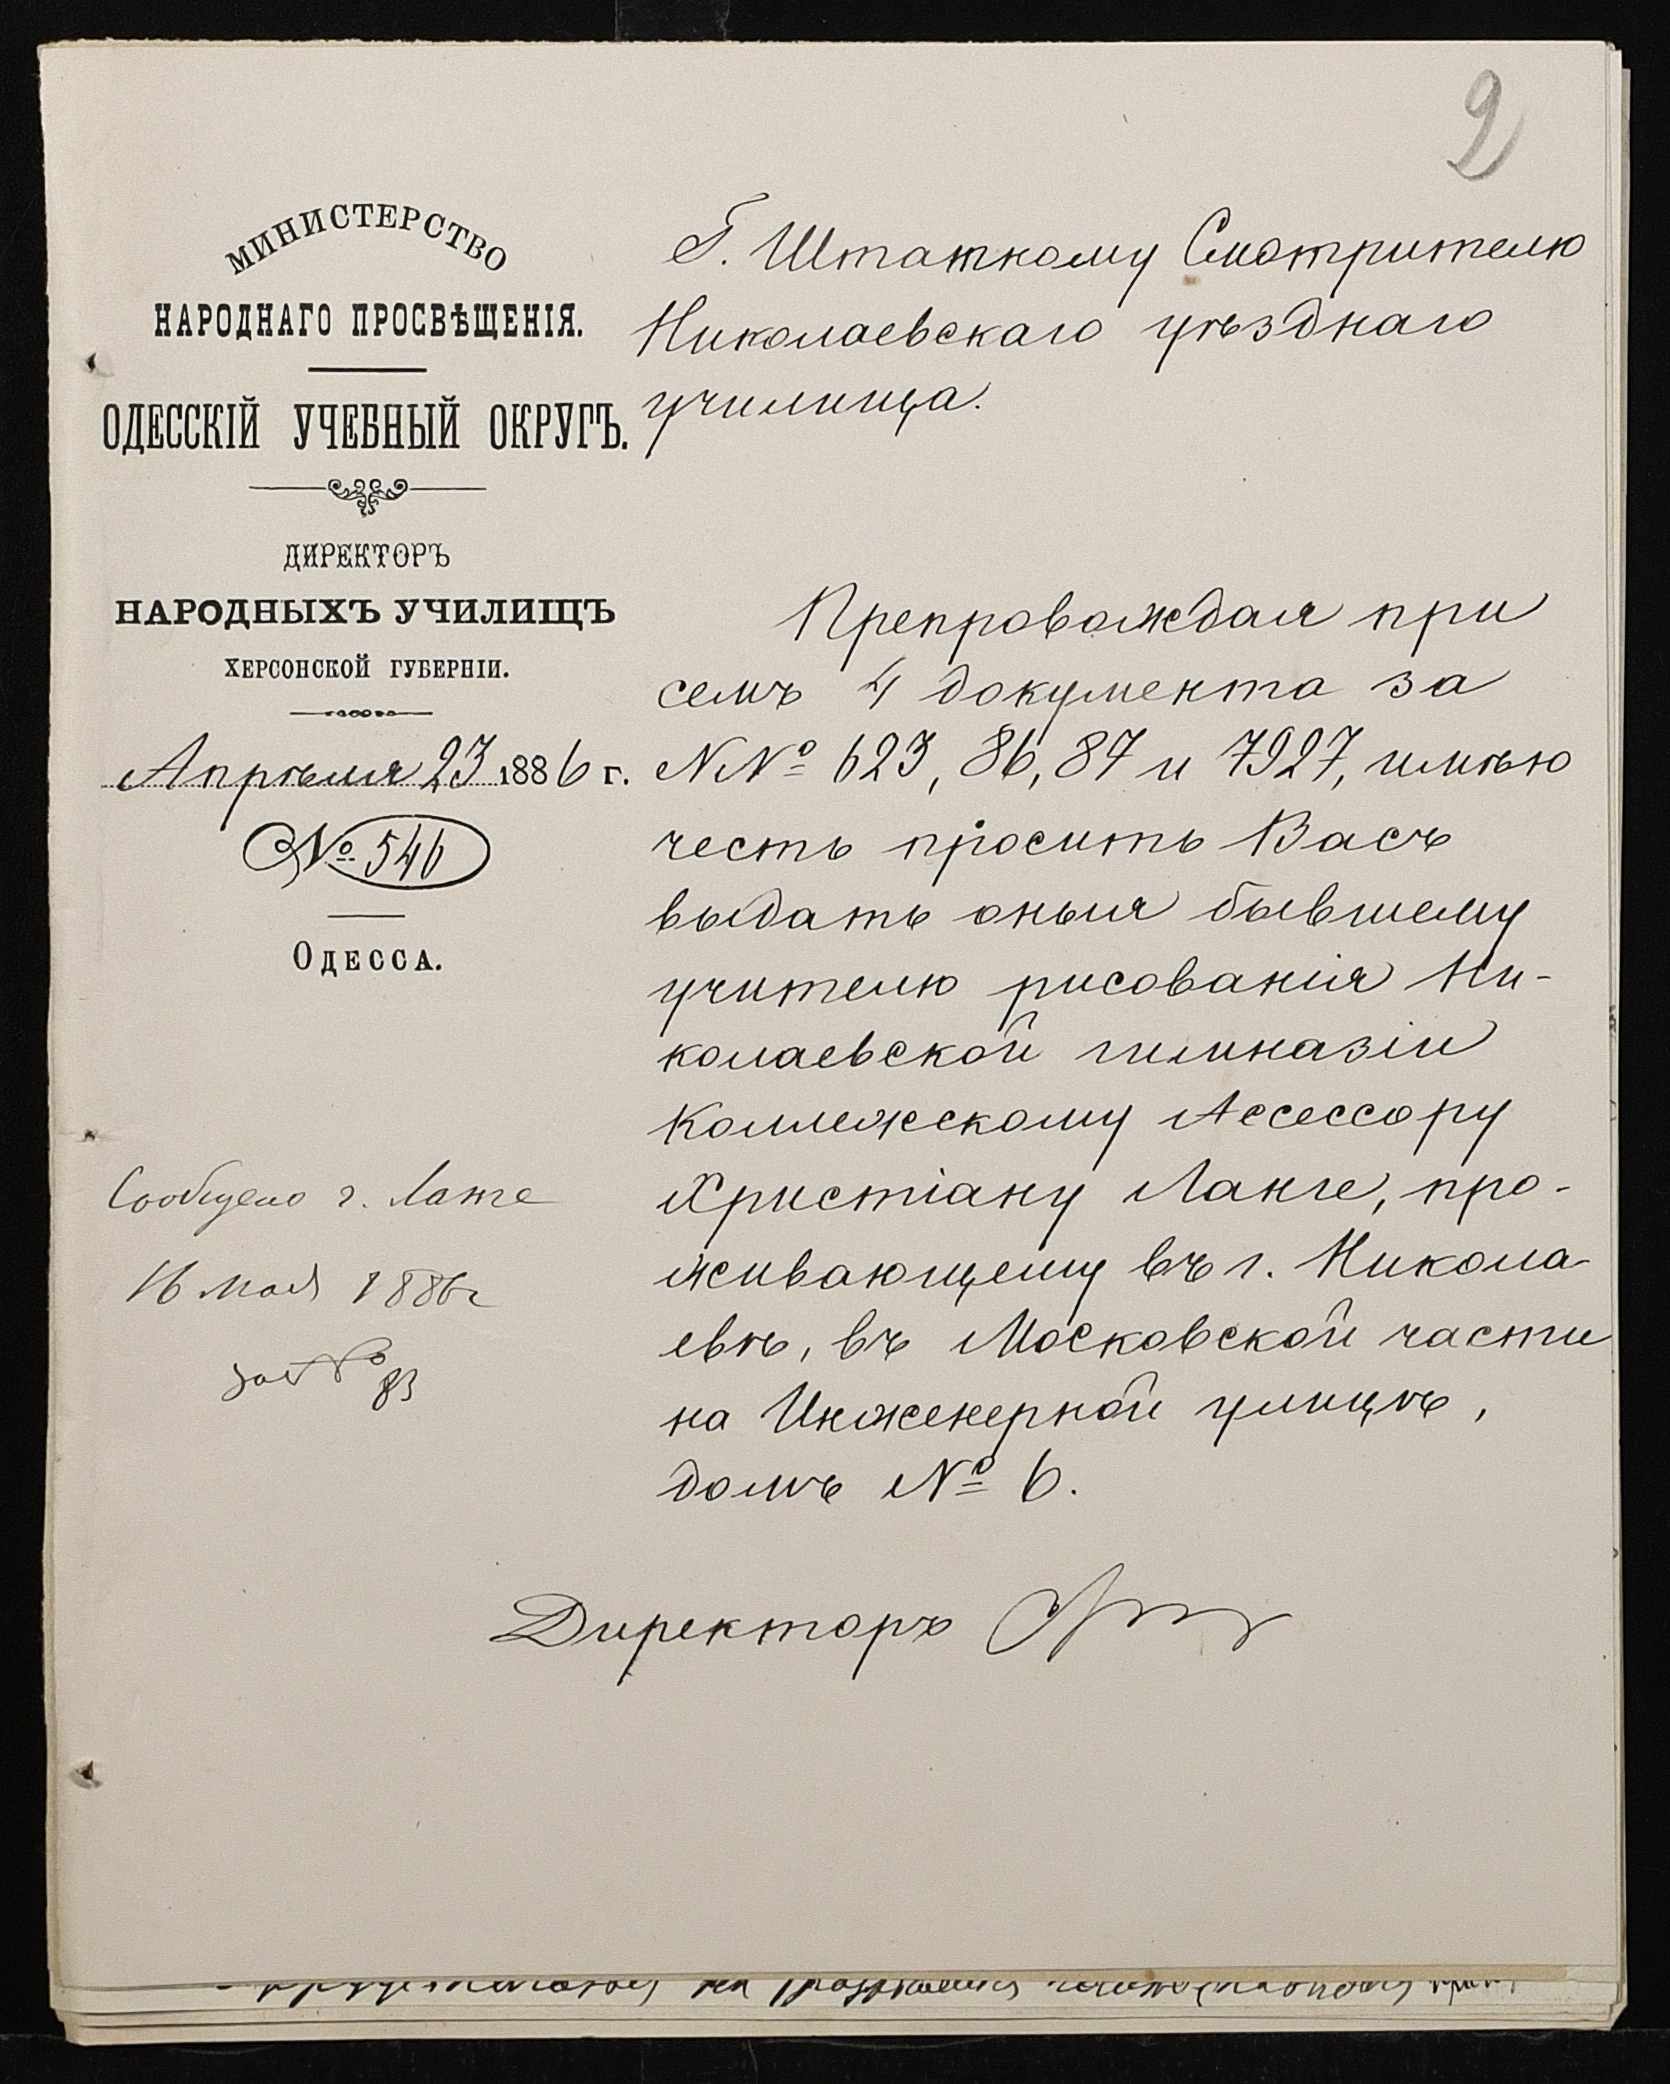 2
МИНИСТЕРСТВО
НАРОДНАГО ПРОСВѢЩЕНІЯ.
ОДЕССКІЙ УЧЕБНЫЙ ОКРУГЪ.
ДИРЕКТОРЪ
НАРОДНЫХЪ УЧИЛИЩЪ
ХЕРСОНСКОЙ ГУБЕРНІИ.
Апрѣля 23 1886 г.
№ 546
ОДЕССА.
Сообщено г. Ланге
16 мая 1886 г
за № 83
Г. Штаткому Смотрителю
Николаевскаго уѣзднаго
училища.
Препровождая при
семъ 4 документа за
NN° 623, 86, 87 и 7927, имѣю
честь просить Васъ
выдать оныя бывшему
учителю рисованія Ни-
колаевской гимназіи
Коллежскому Ассессору
Христіану Ланге, про-
живающему въ г. Никола-
евѣ, въ Московской части
на Инженерной улицѣ,
домъ № 6.
Директоръ